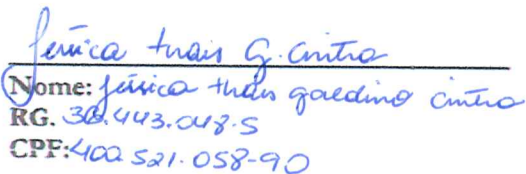 Jéssica thais G. Cintra
Nome: Jéssica thais galdino cintra
RG. 38.443.048-5
CPF: 400.521.058-90